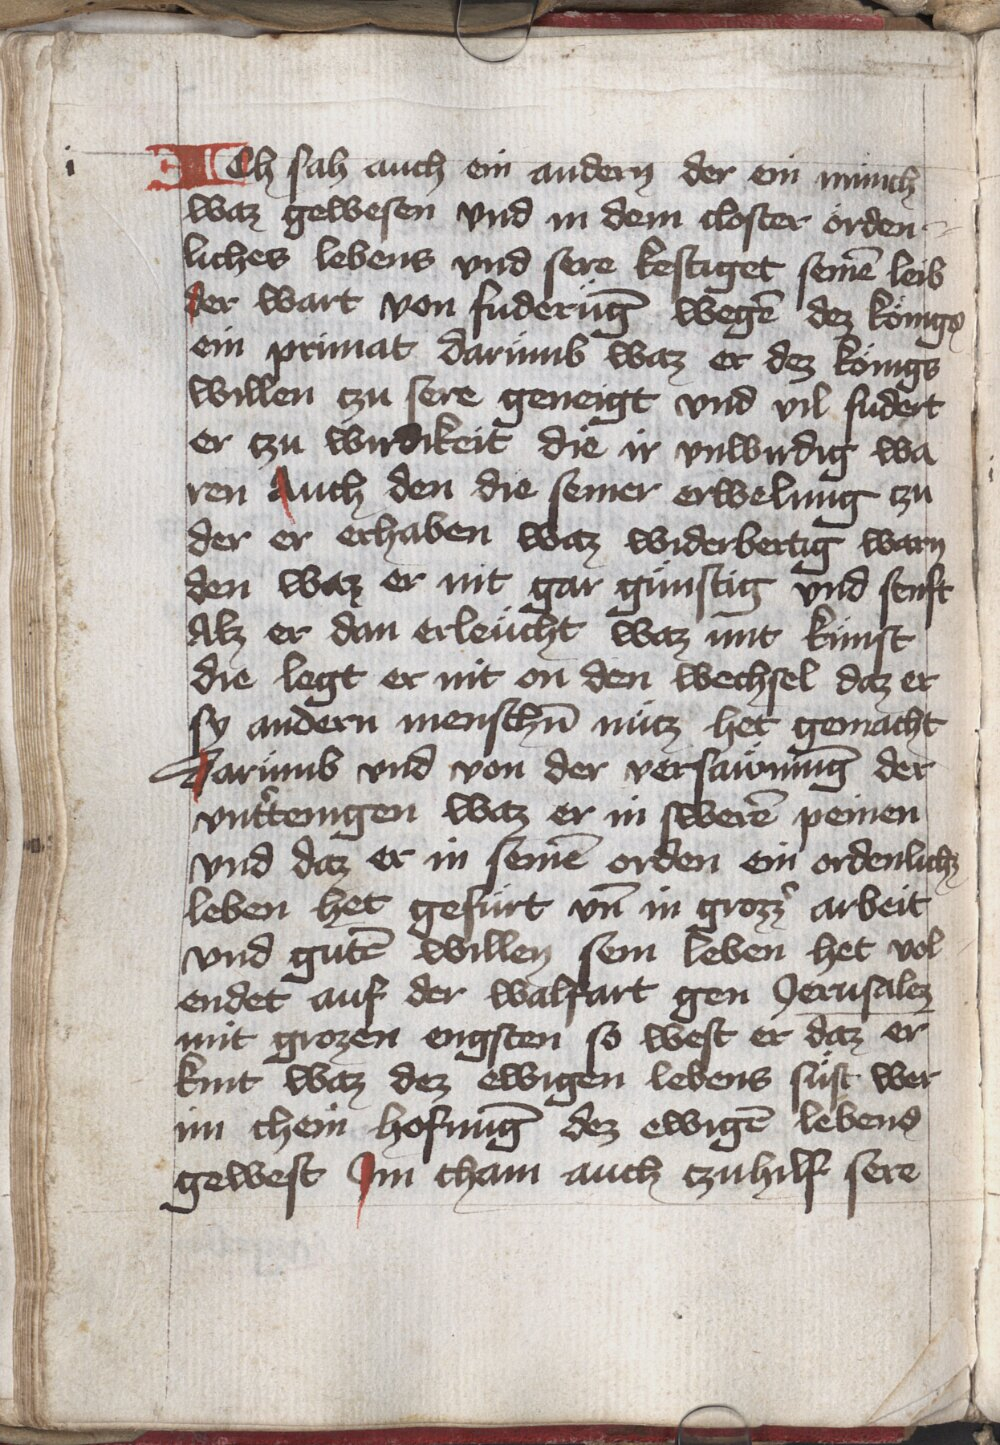 i ICh sah auch ein andern der ein münich
waz gewesen vnd in dem closter orden-
liches lebens vnd sere kestiget seinē leib
der wart von fuderūg wegē dez königs
ein primat darümb waz er dez königs
willen tzu sere geneigt vnd vil fudert
er tzu wirdikeit die ir vnwirdig wa
ren Auch den die seiner erwelung tzu
der er erhaben waz widerbertig warn
den waz er nit gar günstig vnd senft
Alz er dan erleücht waz mit künst
die legt er nit on den wechsel daz er
sy andern menschn̄ nütz het gemacht
Darümb vnd von der versaümūg der
vnttenigen waz er in swerē peinen
vnd daz er in seinē orden ein ordenlichz
leben het gefürt vn̄ in grozz' arbeit
vnd gutē willen sein leben het vol
endet auf der walfart gen Jerusalez
mit grozen engsten so west er daz er
kint waz dez ewigen lebens süst wer
im chein hofnūg dez ewigē lebens
gewest Im cham auch tzuhilf sere